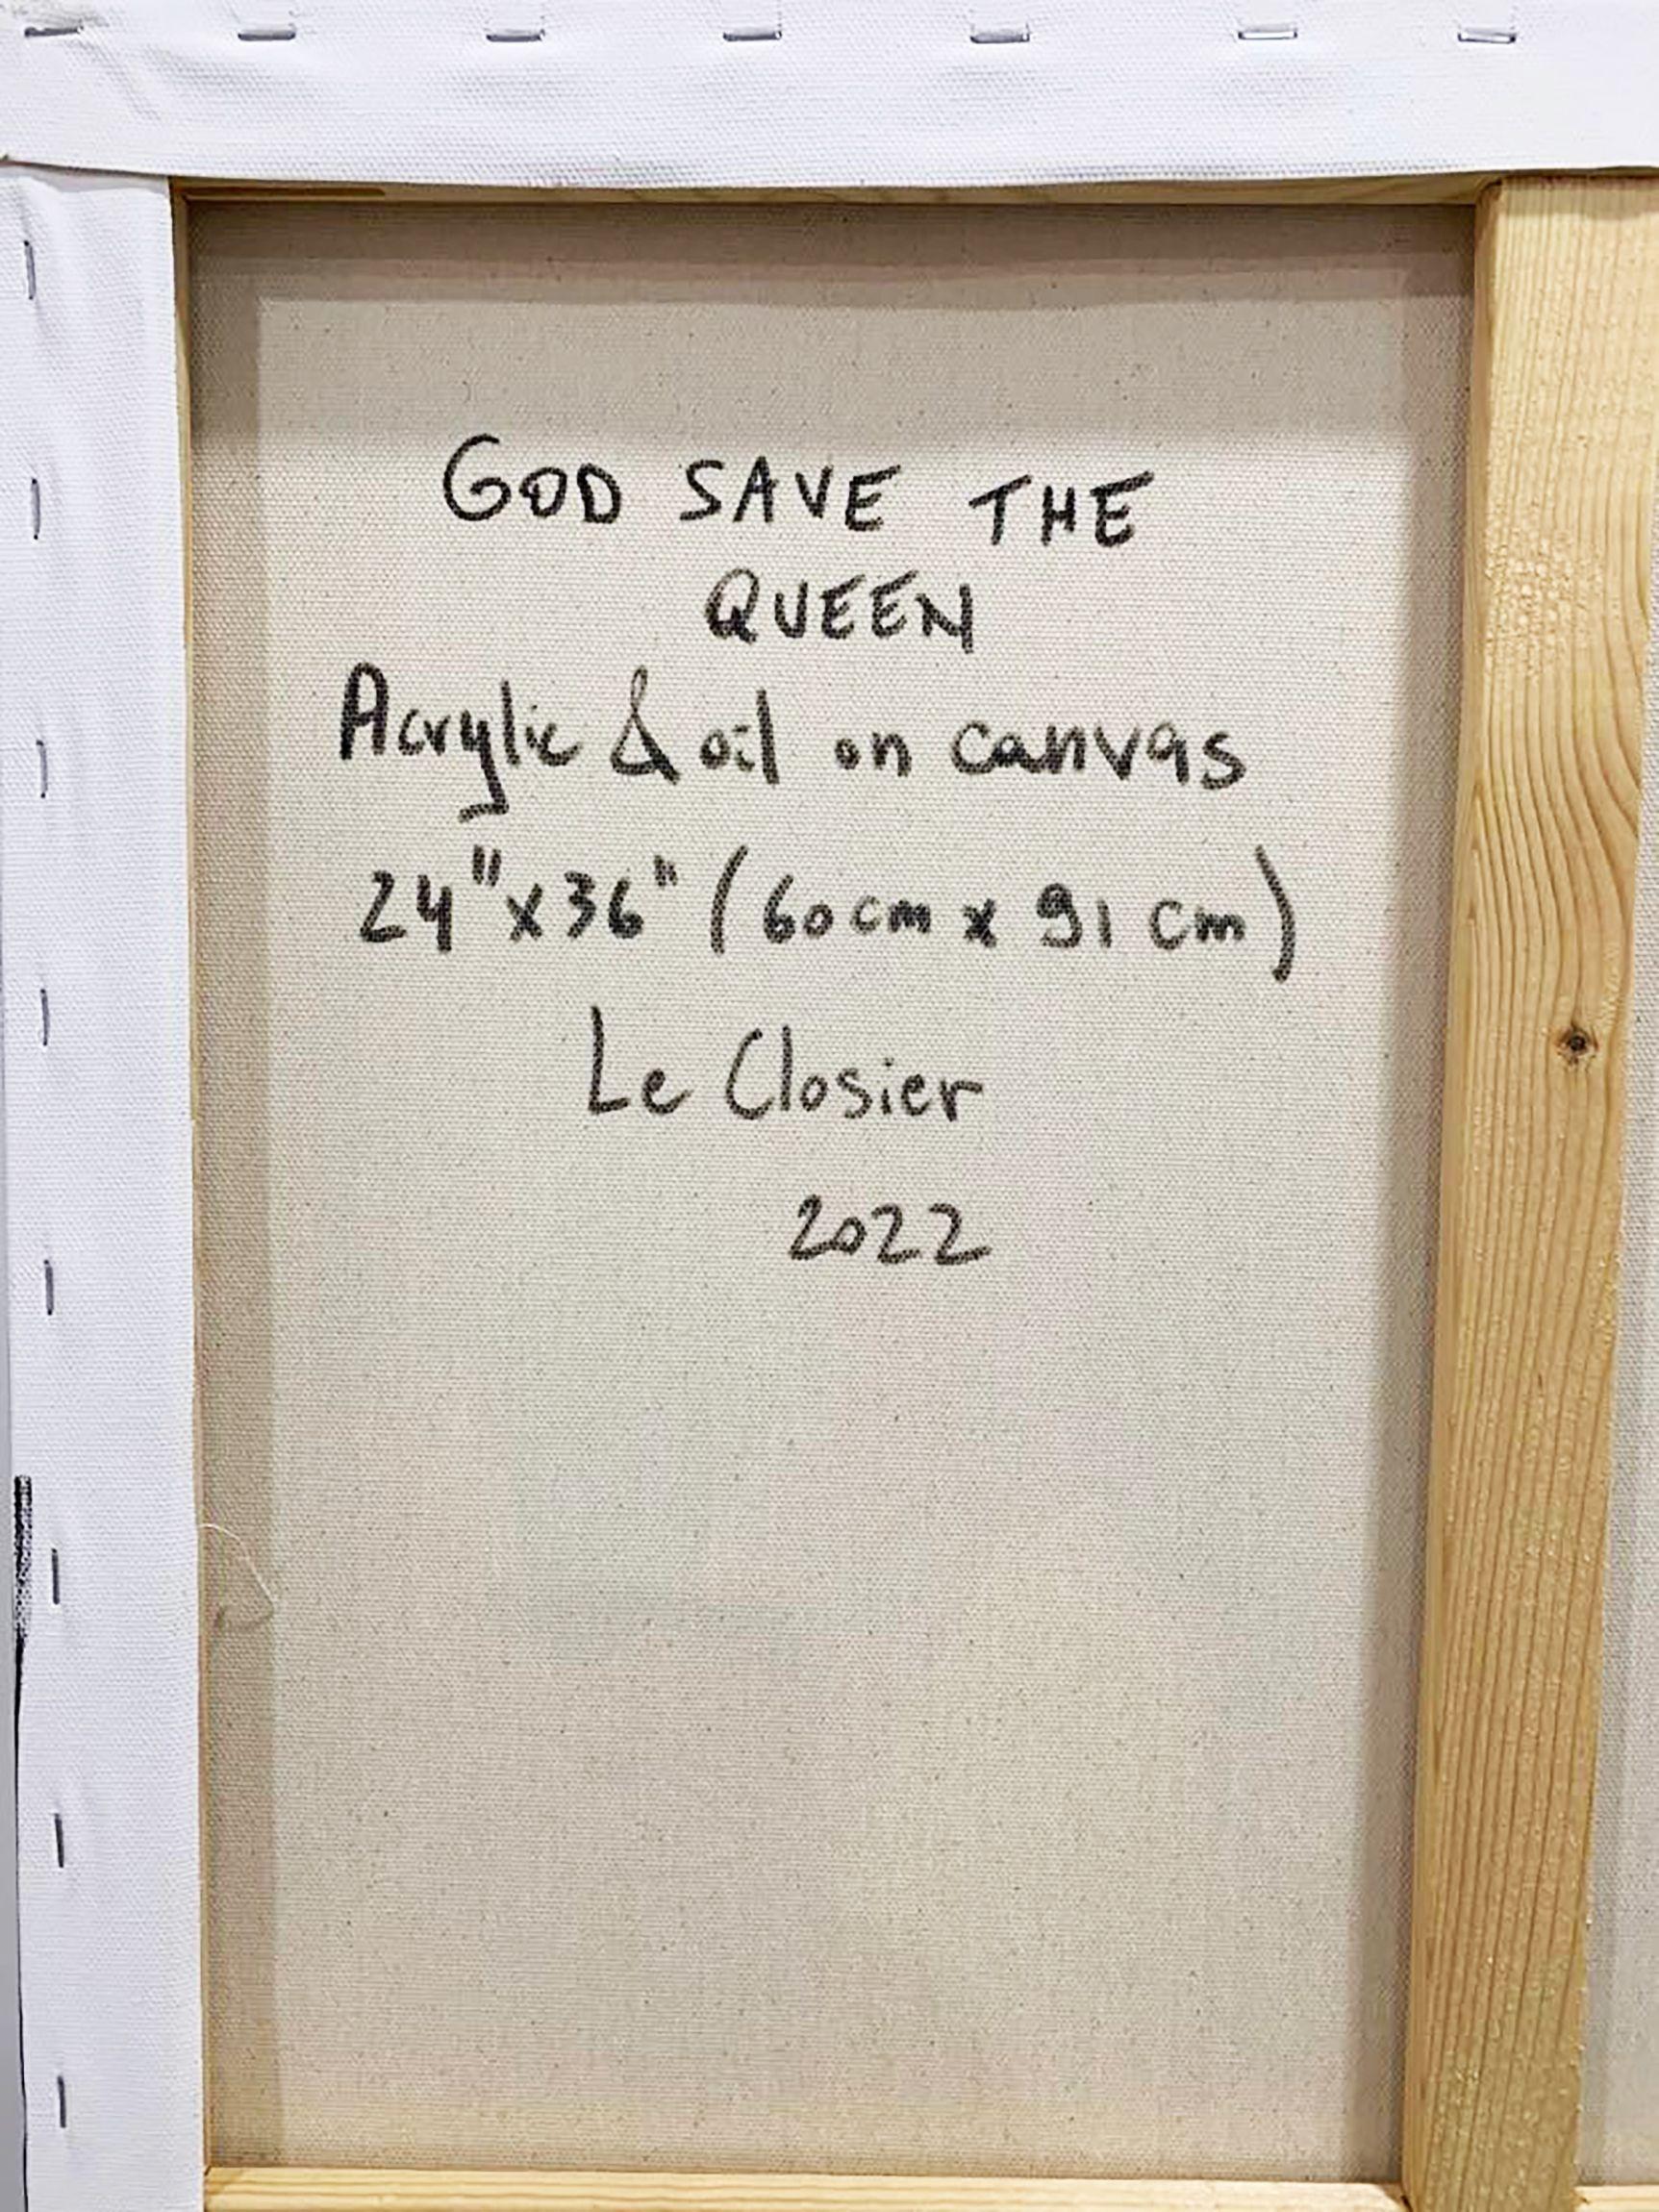 GOD SAVE THE
QUEEN
Acrylic & oil on canvas
24"x36" (60cm x 91 cm)
Le Closier
2022